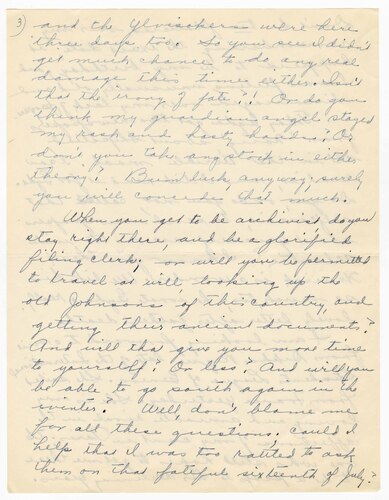 3)
and the Ylvisakers were here
three days too. So you see I didn't
get much chance to do any real
damage this time either. Isn't
that the irony of fate?! Or do you
think my guardian angel stayed
my rash and hasty hands? Or
don't you take any stock in either
theory? Bum luck, anyway; surely
you will concede that much.
When you get to be archivist, do you
stay right there, and be a glorified
filing clerk; or will you be permitted
to travel at will, looking up the
old Johnsons of this country, and
getting their ancient documents?
And will that give you more time
to yourself? Or less? And will you
be able to go south again in the
winter? Well, don't blame me
for all these questions; could I
help that I was too rattled to ask
them on that fateful sixteenth of July?